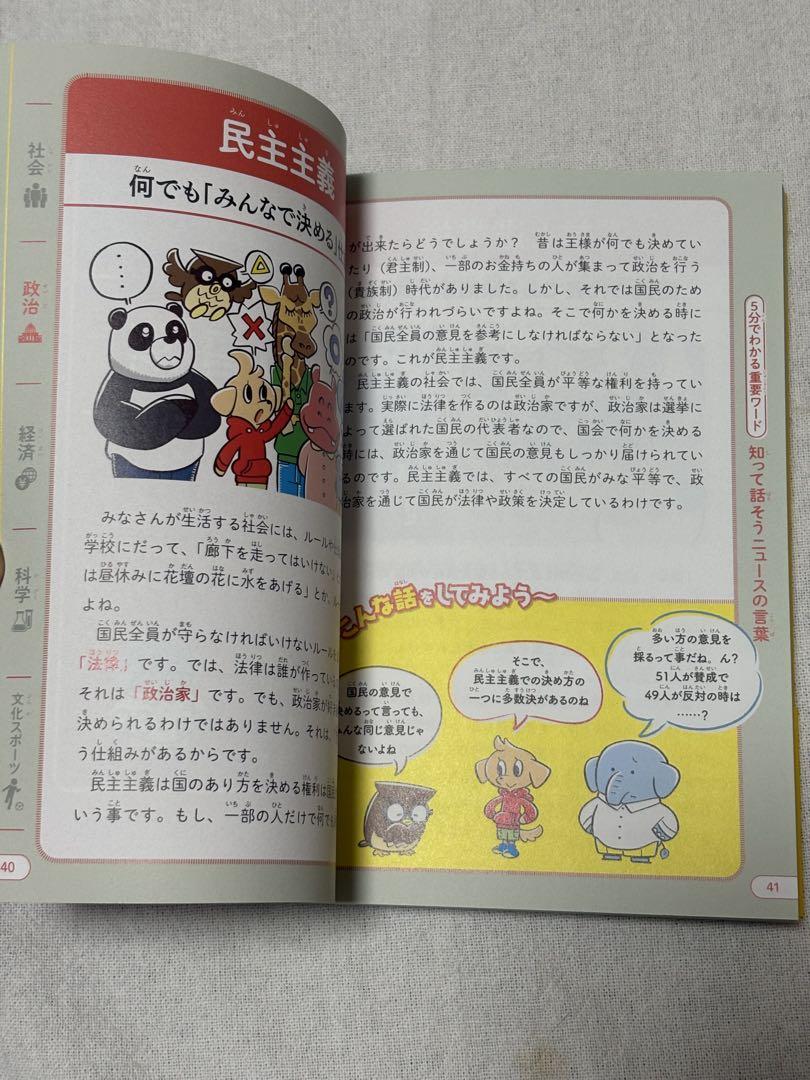 社会
政治
経済
科学
文化スポーツ
民主主義
何でも「みんなで決める」
…
みなさんが生活する社会には、ルールや
学校にだって、「廊下を走ってはいけない」
は昼休みに花壇の花に水をあげる」とか、
よね。
国民全員が守らなければいけないルール
「法律」です。では、法律は誰が作ってい
それは「政治家」です。でも、政治家が
決められるわけではありません。それは、
う仕組みがあるからです。
民主主義は国のあり方を決める権利は
いう事です。もし、一部の人だけで何で
40
が出来たらどうでしょうか？ 昔は王様が何でも決めてい
たり（君主制）、一部のお金持ちの人が集まって政治を行う
（貴族制）時代がありました。しかし、それでは国民のため
の政治が行われづらいですよね。そこで何かを決める時に
は「国民全員の意見を参考にしなければならない」となった
のです。これが民主主義です。
民主主義の社会では、国民全員が平等な権利を持ってい
ます。実際に法律を作るのは政治家ですが、政治家は選挙に
よって選ばれた国民の代表者なので、国会で何かを決める
時には、政治家を通じて国民の意見もしっかり届けられてい
るのです。民主主義では、すべての国民がみな平等で、政
治家を通じて国民が法律や政策を決定しているわけです。
こんな話をしてみよう〜
国民の意見で
決めるって言っても、
みんな同じ意見じゃ
ないよね
そこで、
民主主義での決め方の
一つに多数決があるのね
多い方の意見を
採るって事だね。ん？
51人が賛成で
49人が反対の時は
……？
5分でわかる重要ワード
知って話そうニュースの言葉
41